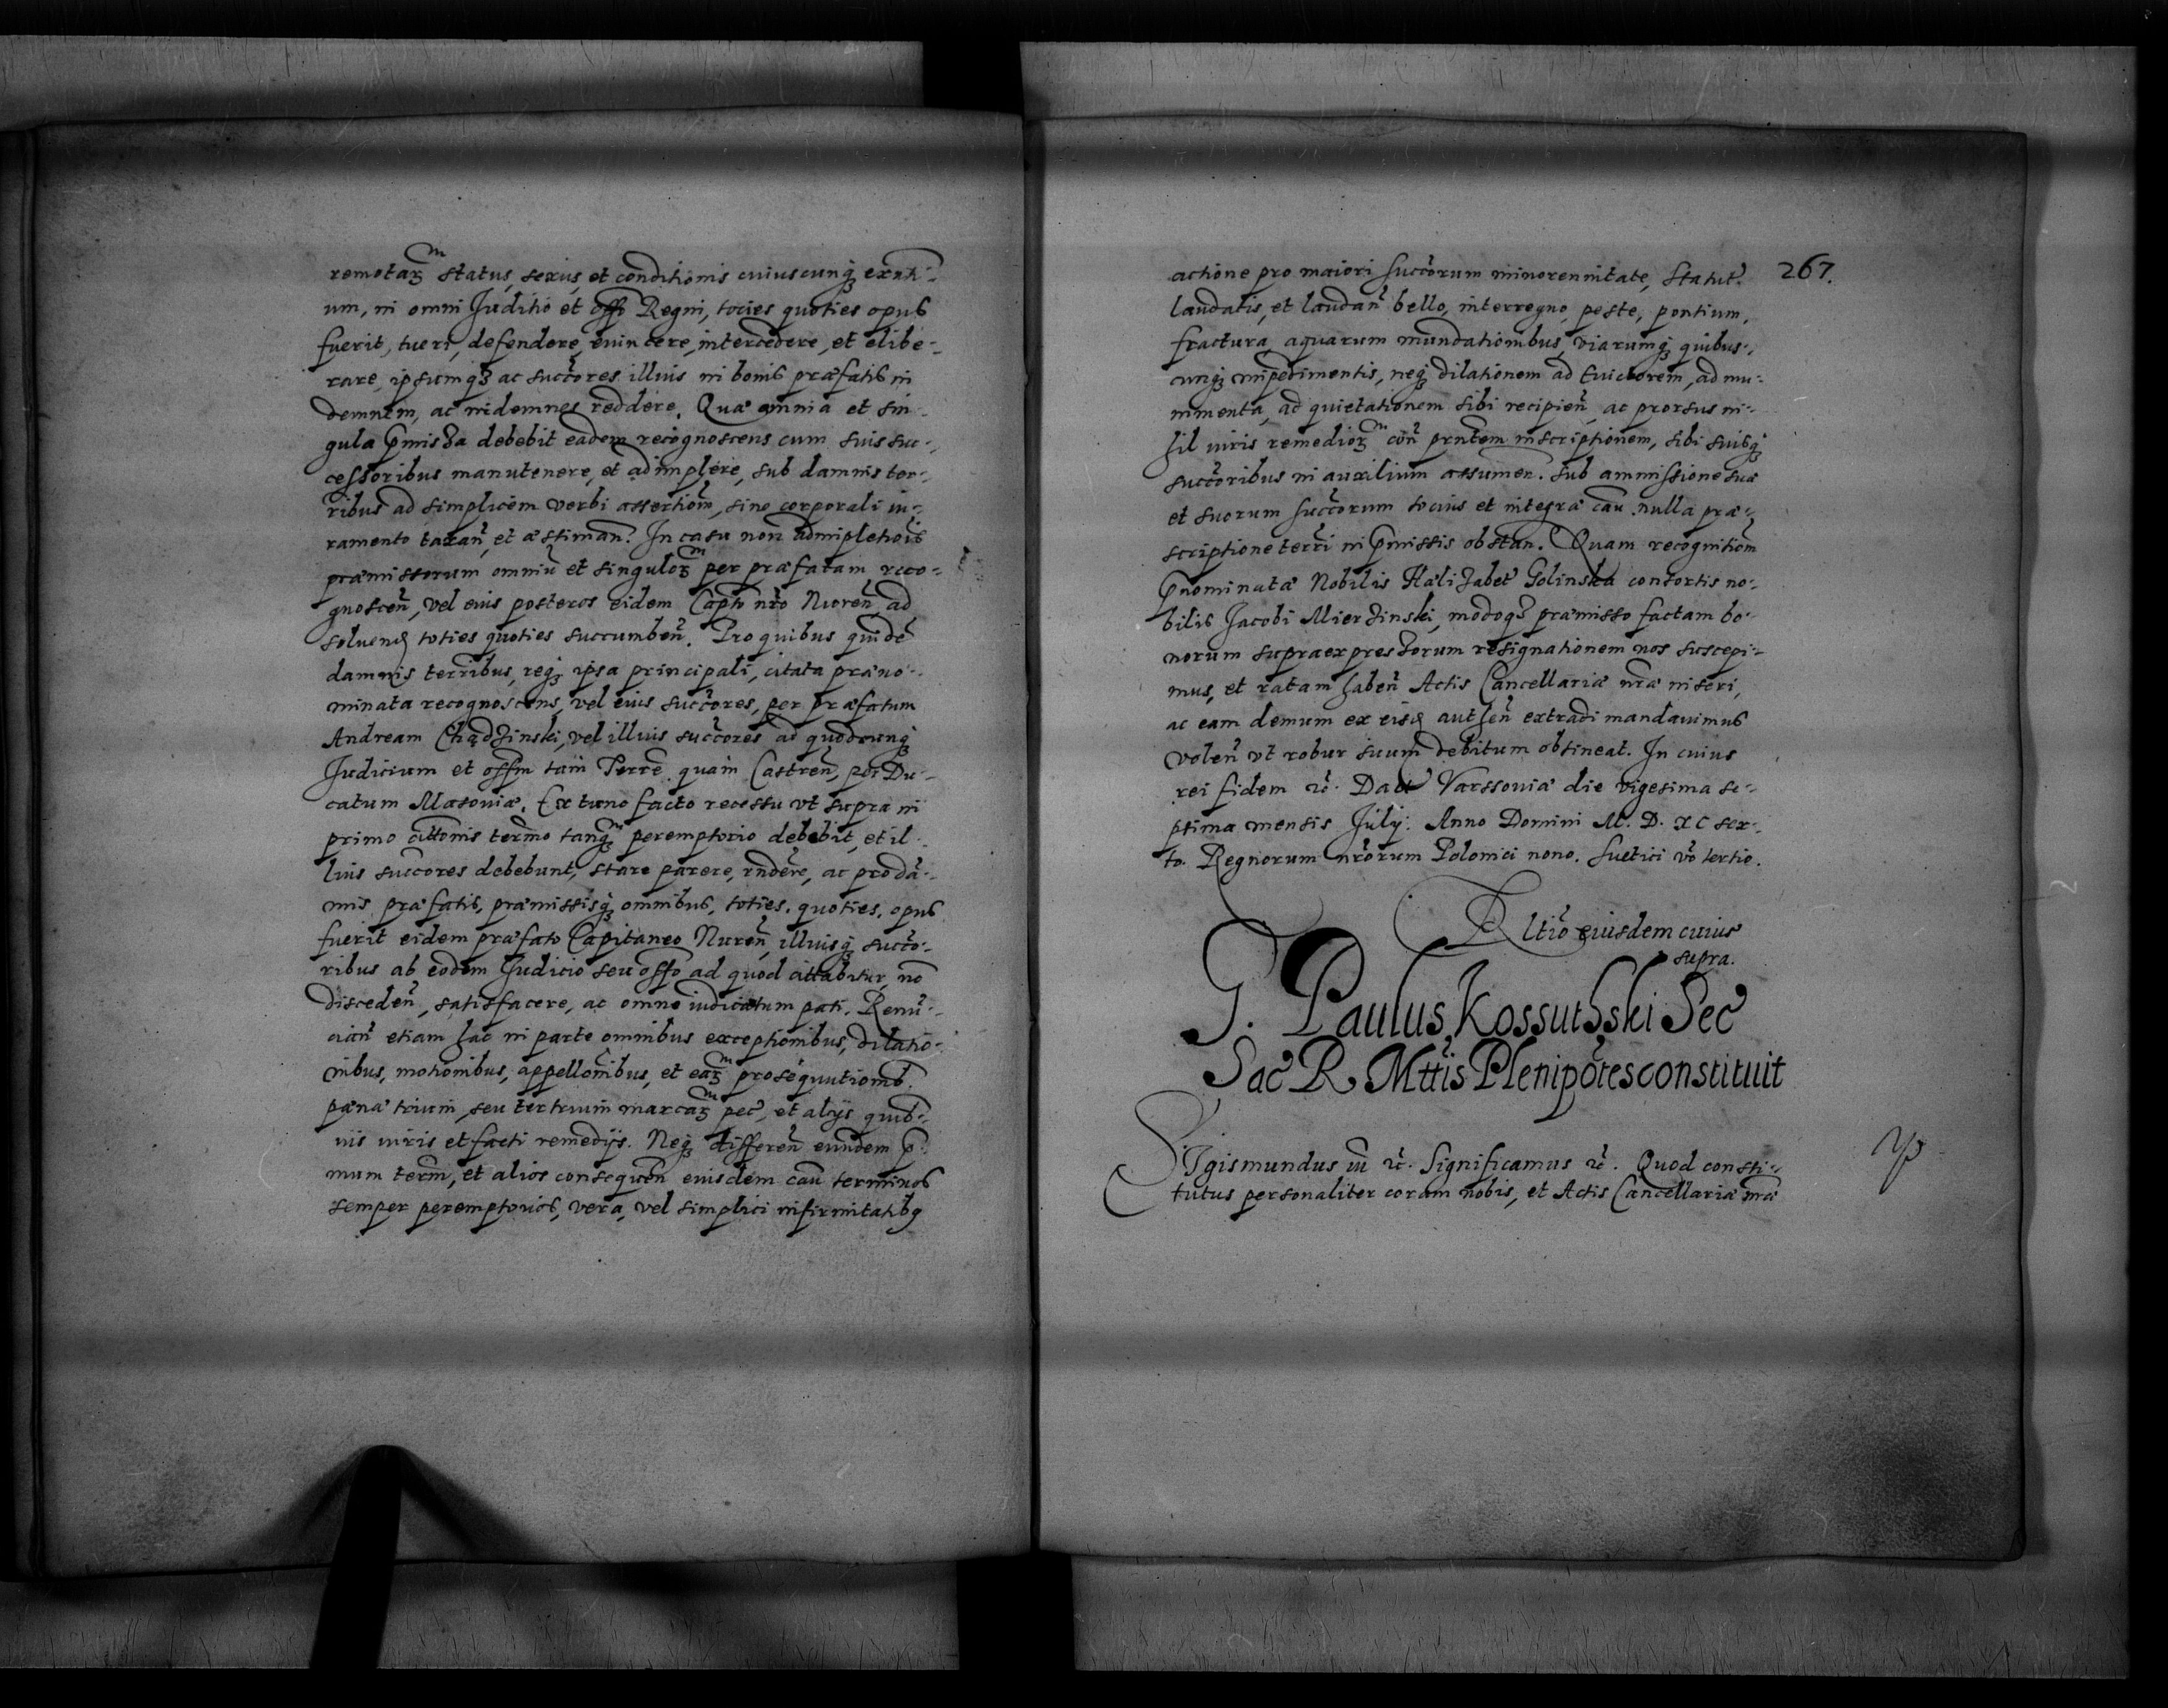 remotaꝝ status, sexus, et conditionis cuiuscunqꝫ exñti-
um, in omni Juditio et offo Regni, tocies quoties opus
fuerit, tueri, defendere, euincere, intercedere, et elibe-
rare, ipsumqꝫ ac succ̃ores illius in bonis præfatis in
demnem, ac indemnes reddere. Quæ omnia et sin-
gula p̃missa debebit eadem recognoscens cum suis suc-
cessoribus manutenere, et adimplere, sub damnis ter-
ribus ad simplicem verbi assertiom̃, sine corporali iu-
ramento taxañ, et æstimañ. In casu non adimpletiois
præmissorum omniũ et singuloꝝ per præfatam reco-
gnosceñ, vel eius posteros eidem Capto nr̃o Nureñ, ad
soluend toties quoties succumbeñ. Pro quibus quidẽ
damnis terribus, reqꝫ ipsa principali, citata præno-
minata recognoscens, vel eius succ̃ores, per præfatum
Andream Chądzinski, vel illius succ̃ores ad quodcunqꝫ
Judicium et offm tam Terrẽ quam Castreñ, per Du-
catum Masouiæ. Ex tunc facto recessu vt supra in
primo cittonis termo tanqꝫ peremptorio debebit, et il-
lius succ̃ores debebunt, stare parere, rñdere, ac pro dã-
nis præfatis, præmissisqꝫ omnibus, toties. quoties. opus
fuerit eidem præfato Capitaneo Nureñ, illiusqꝫ succ̃o-
ribus ab eodem Judicio seu offo ad quod cittabitur, nõ
discedeñ, satisfacere, ac omne iudicatum pati. Renũ-
ciañ etiam hac in parte omnibus exceptionibus, dilatio-
nibus, motionibus, appellonibus, et eaꝝ prosequutionib.
pæna trium, seu ter trium marcaꝝ pec̃, et alijs quib-
uis iuris et facti remedijs. Neqꝫ differeñ eundem p̃-
mum term̃, et alios consequeñ eiusdem cau͠ terminos
semper peremptorios, vera, vel simplici infirmitatibꝫ
actione pro maiori succ̃orum minorennitate, Statut. 267.
laudatis, et laudañ bello, interregno, peste, pontium,
fractura, aquarum inundationibus, viarumqꝫ quibus-
cunqꝫ impedimentis, neqꝫ dilationem ad Euictorem, ad mu-
nimenta, ad quietationem sibi recipieñ, ac prorsus ni-
hil iuris remedioꝝ coñ prñtem inscriptionem, sibi suisqꝫ
succ̃oribus in auxilium assumen. Sub ammissione suæ
et suorum succ̃orum tocius et integræ cau͠. nulla præ-
scriptione terri in p̃missis obstan. Quam recognitiom̃
p̃nominatæ Nobilis Halizabet Golinska consortis no-
bilis Jacobi Mierzinski, modoqꝫ præmisso factam bo-
norum supraexpressorum resignationem nos suscepi-
mus, et ratam habeñ Actis Cancellariæ nr̃æ inseri,
ac eam demum ex eisd autheñ extradi mandauimus
voleñ vt robur suum debitum obtineat. In cuius
rei fidem ꝛc̃. Dat Varssouiæ die vigesima se-
ptima mensis Julij. Anno Domini M. D. XC sex-
to. Regnorum nr̃orum Polonici nono. Suetici vo͠ tertio.
Rltio eiusdem cuius
supra.
G. Paulus Kossuthski Sec
Sac R Mttis Plenipotes constituit
Sigismundus iii ꝛc̃. Significamus ꝛc̃. Quod consti-
tutus personaliter coram nobis, et Actis Cancellariæ nr̃æ